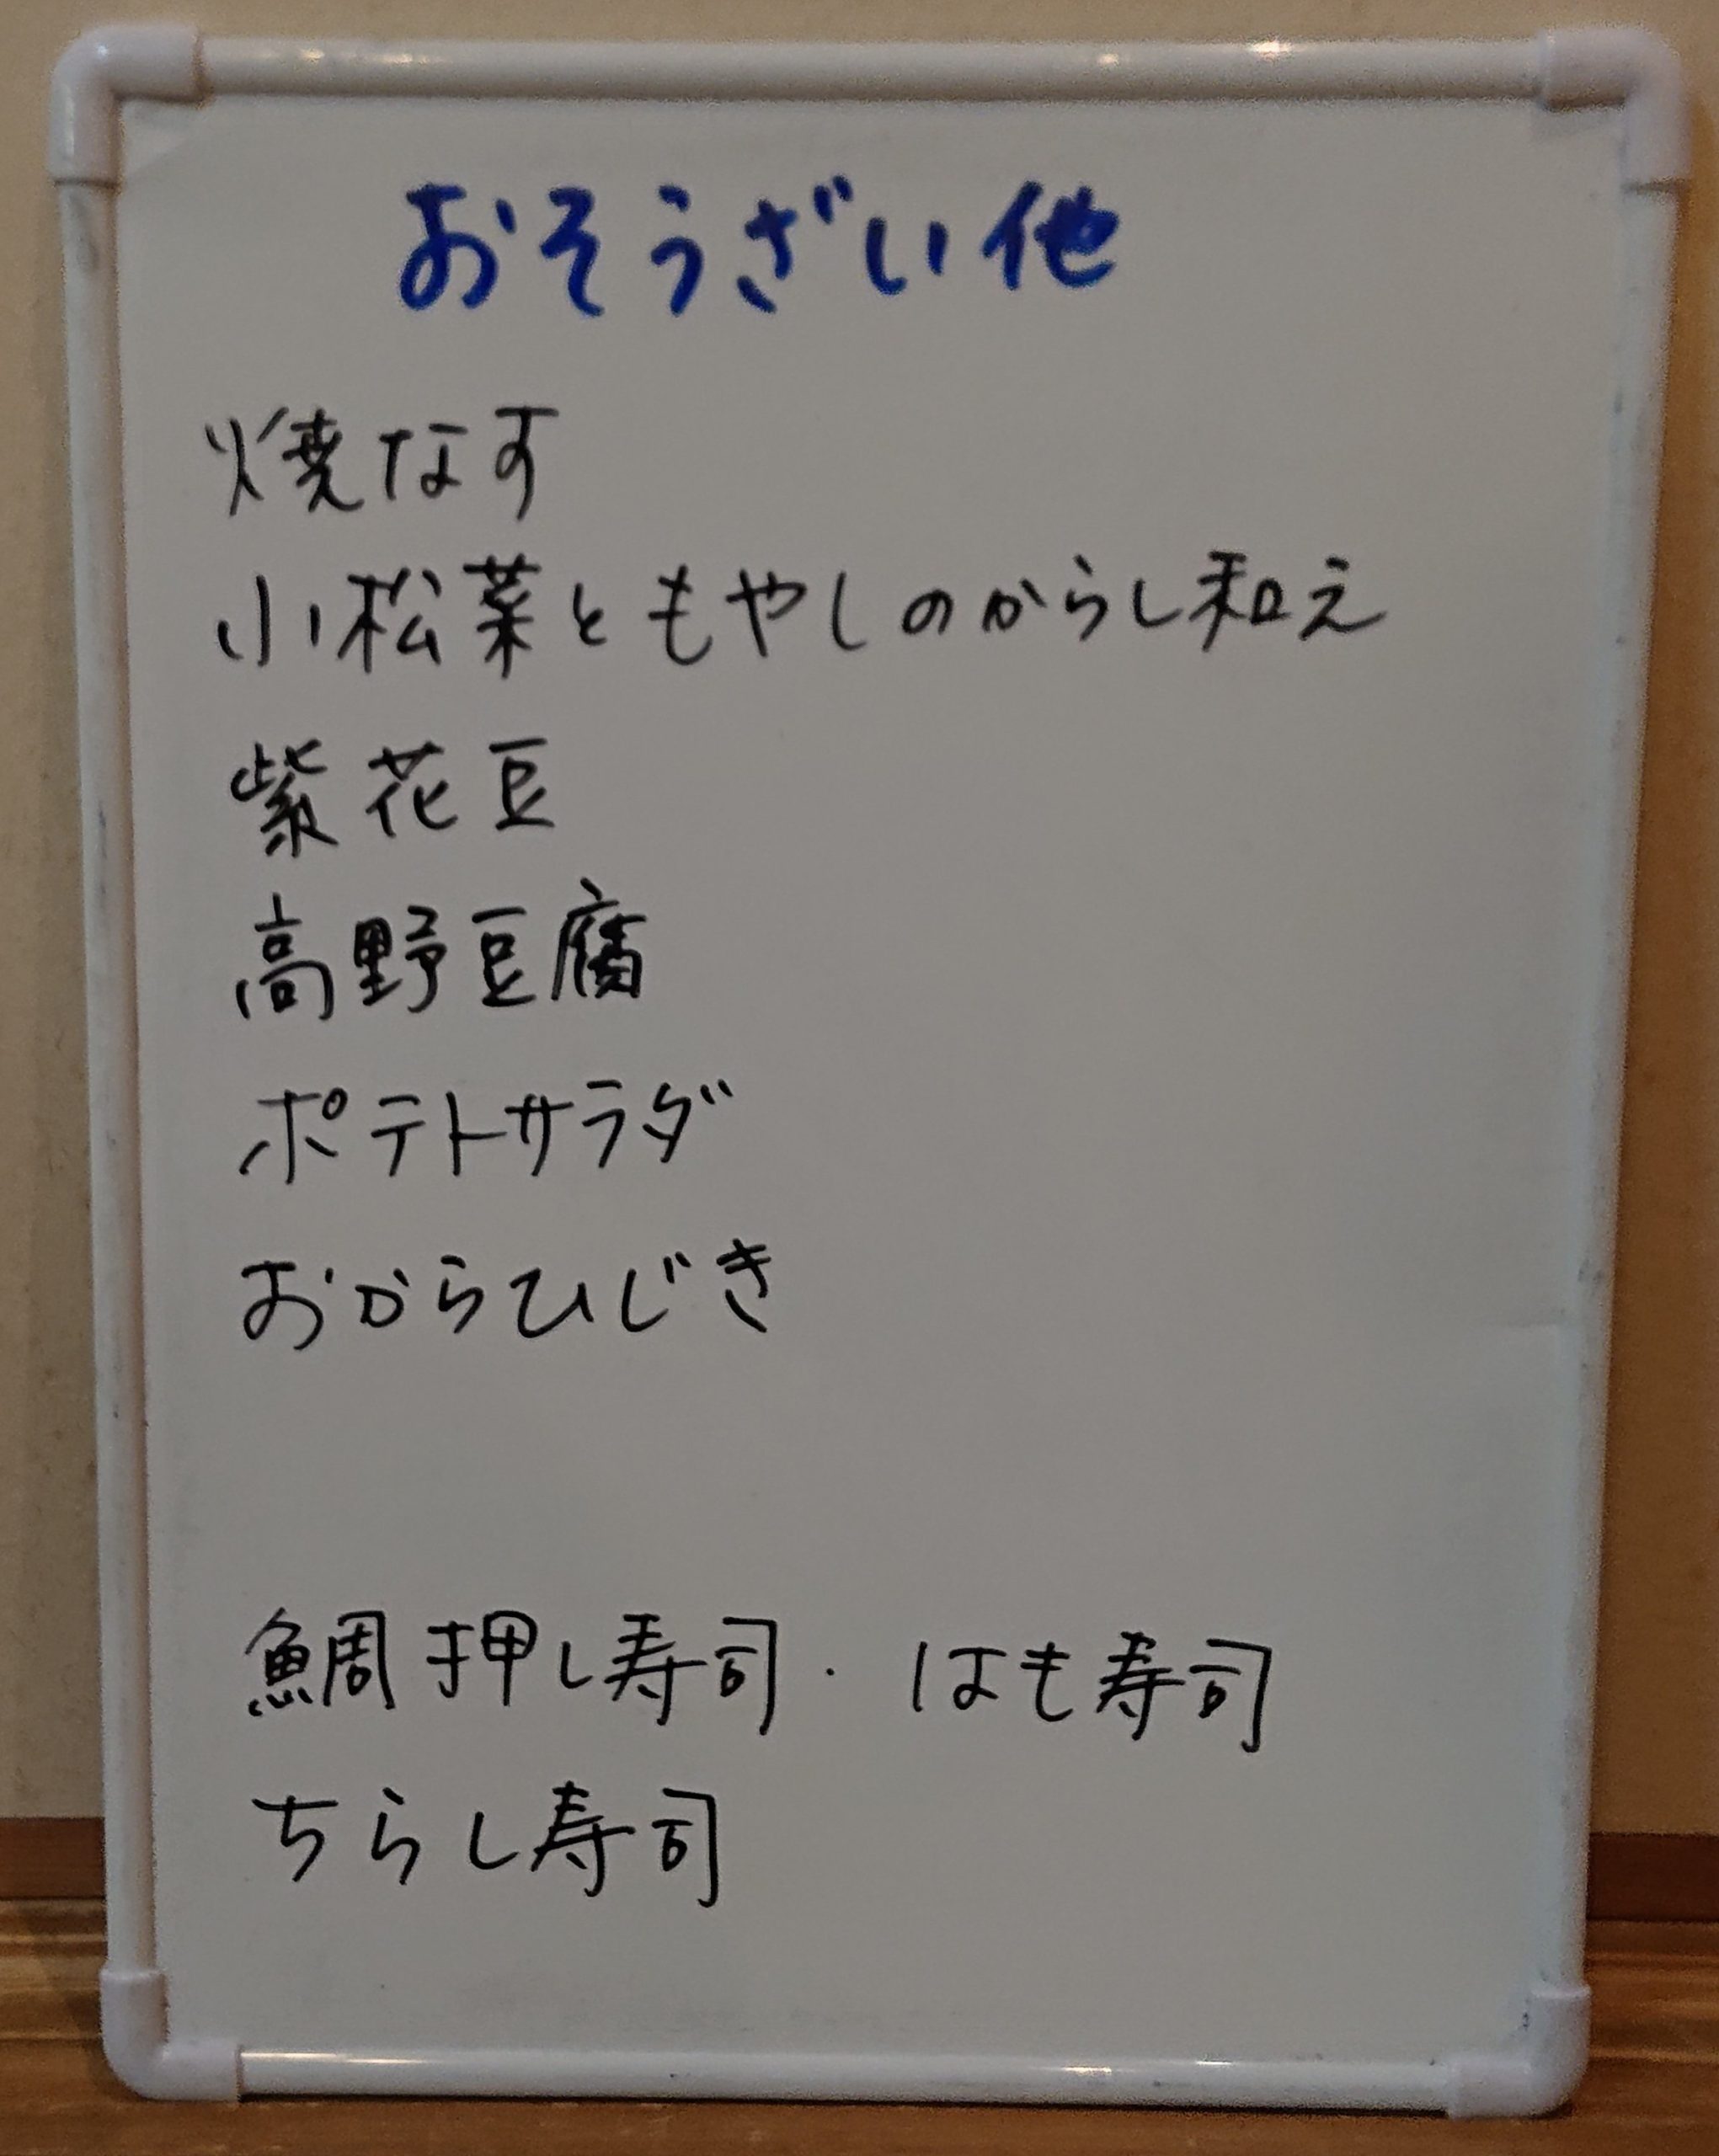 おそうざい他
焼なす
小松菜ともやしのからし和え
紫花豆
高野豆腐
ポテトサラダ
おからひじき
鯛押し寿司・はも寿司
ちらし寿司